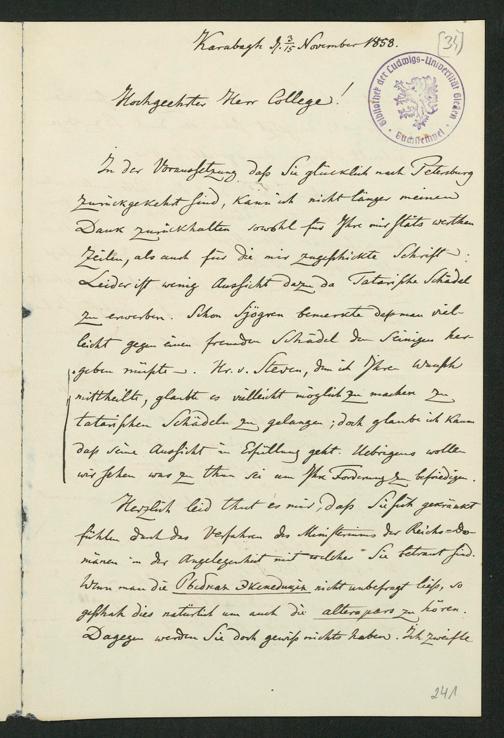 Karabagh d. 3/15 November 1858.
[31]
Bibliothek der Ludwigs-Universität Giessen
Buchstempel
Hochgeehrter Herr College!
In der Voraussetzung, daß Sie glücklich nach Petersburg
zurückgekehrt sind, kann ich nicht länger meinen
Dank zurückhalten sowohl für Ihre mir stäts werthen
Zeilen, als auch für die mir zugeschickte Schrift.
Leider ist wenig Aussicht dazu da Tatarische Schädel
zu erwerben. Schon Sjögren bemerkte daß man viel-
leicht gegen einen fremden Schädel den seinigen her-
geben müßte. Hr. v. Steven, dem ich Ihren Wunsch
mittheilte, glaubte es vielleicht möglich zu machen zu
tatarischen Schädeln zu gelangen; doch glaube ich kaum
daß seine Aussicht in Erfüllung geht. Uebrigens wollen
wir sehen was zu thun sei um Ihre Forderung zu befriedigen.
Herzlich leid thut es mir, daß Sie sich gekränkt
fühlen durch das Verfahren des Ministeriums der Reichs-Do-
mänen in der Angelegenheit mit welcher Sie betraut sind.
Wenn man die Рыбная Экспедиція nicht unbefragt ließ, so
geschah dies natürlich um auch die altera pars zu hören.
Dagegen werden Sie doch gewiß nichts haben. Ich zweifle
241